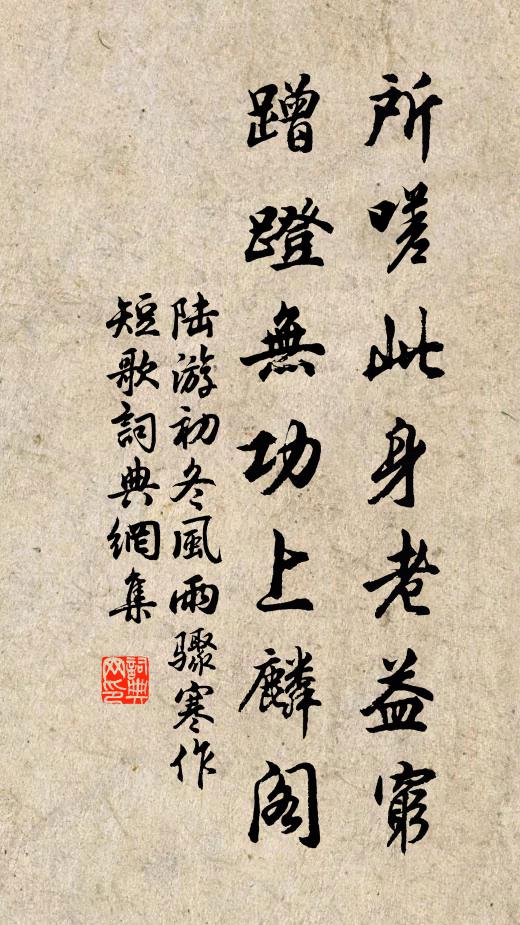 所嗟此身老益窮
蹭蹬無功上麟閣
陆游初冬風雨驟寒作
短歌詞典網集
詞典
网印